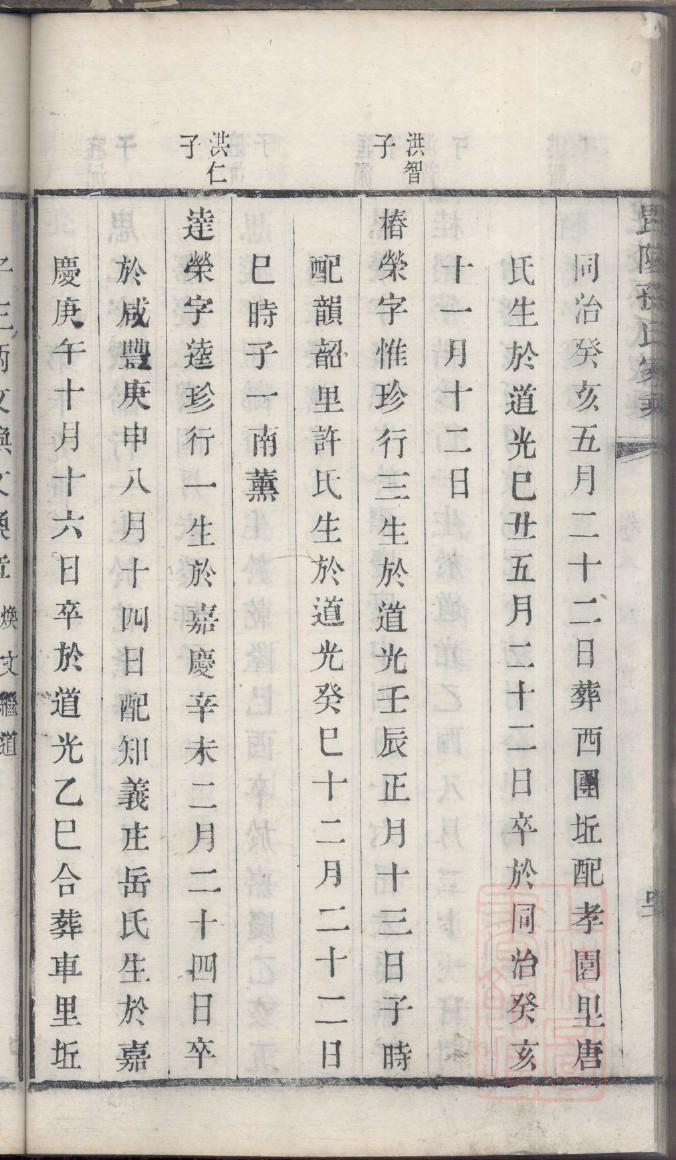 同治癸亥五月二十二日葬西團坵配孝園里唐
氏生於道光己丑五月二十二日卒於同治癸亥
十一月十二日
洪智
子
椿榮字惟珍行三生於道光壬辰正月十三日子時
配韻韶里許氏生於道光癸巳十二月二十二日
巳時子一南薰
洪仁
子
達榮字逵珍行一生於嘉慶辛未二月二十四日卒
於咸豐庚申八月十四日配知義庄岳氏生於嘉
慶庚午十月十六日卒於道光乙巳合葬車里坵